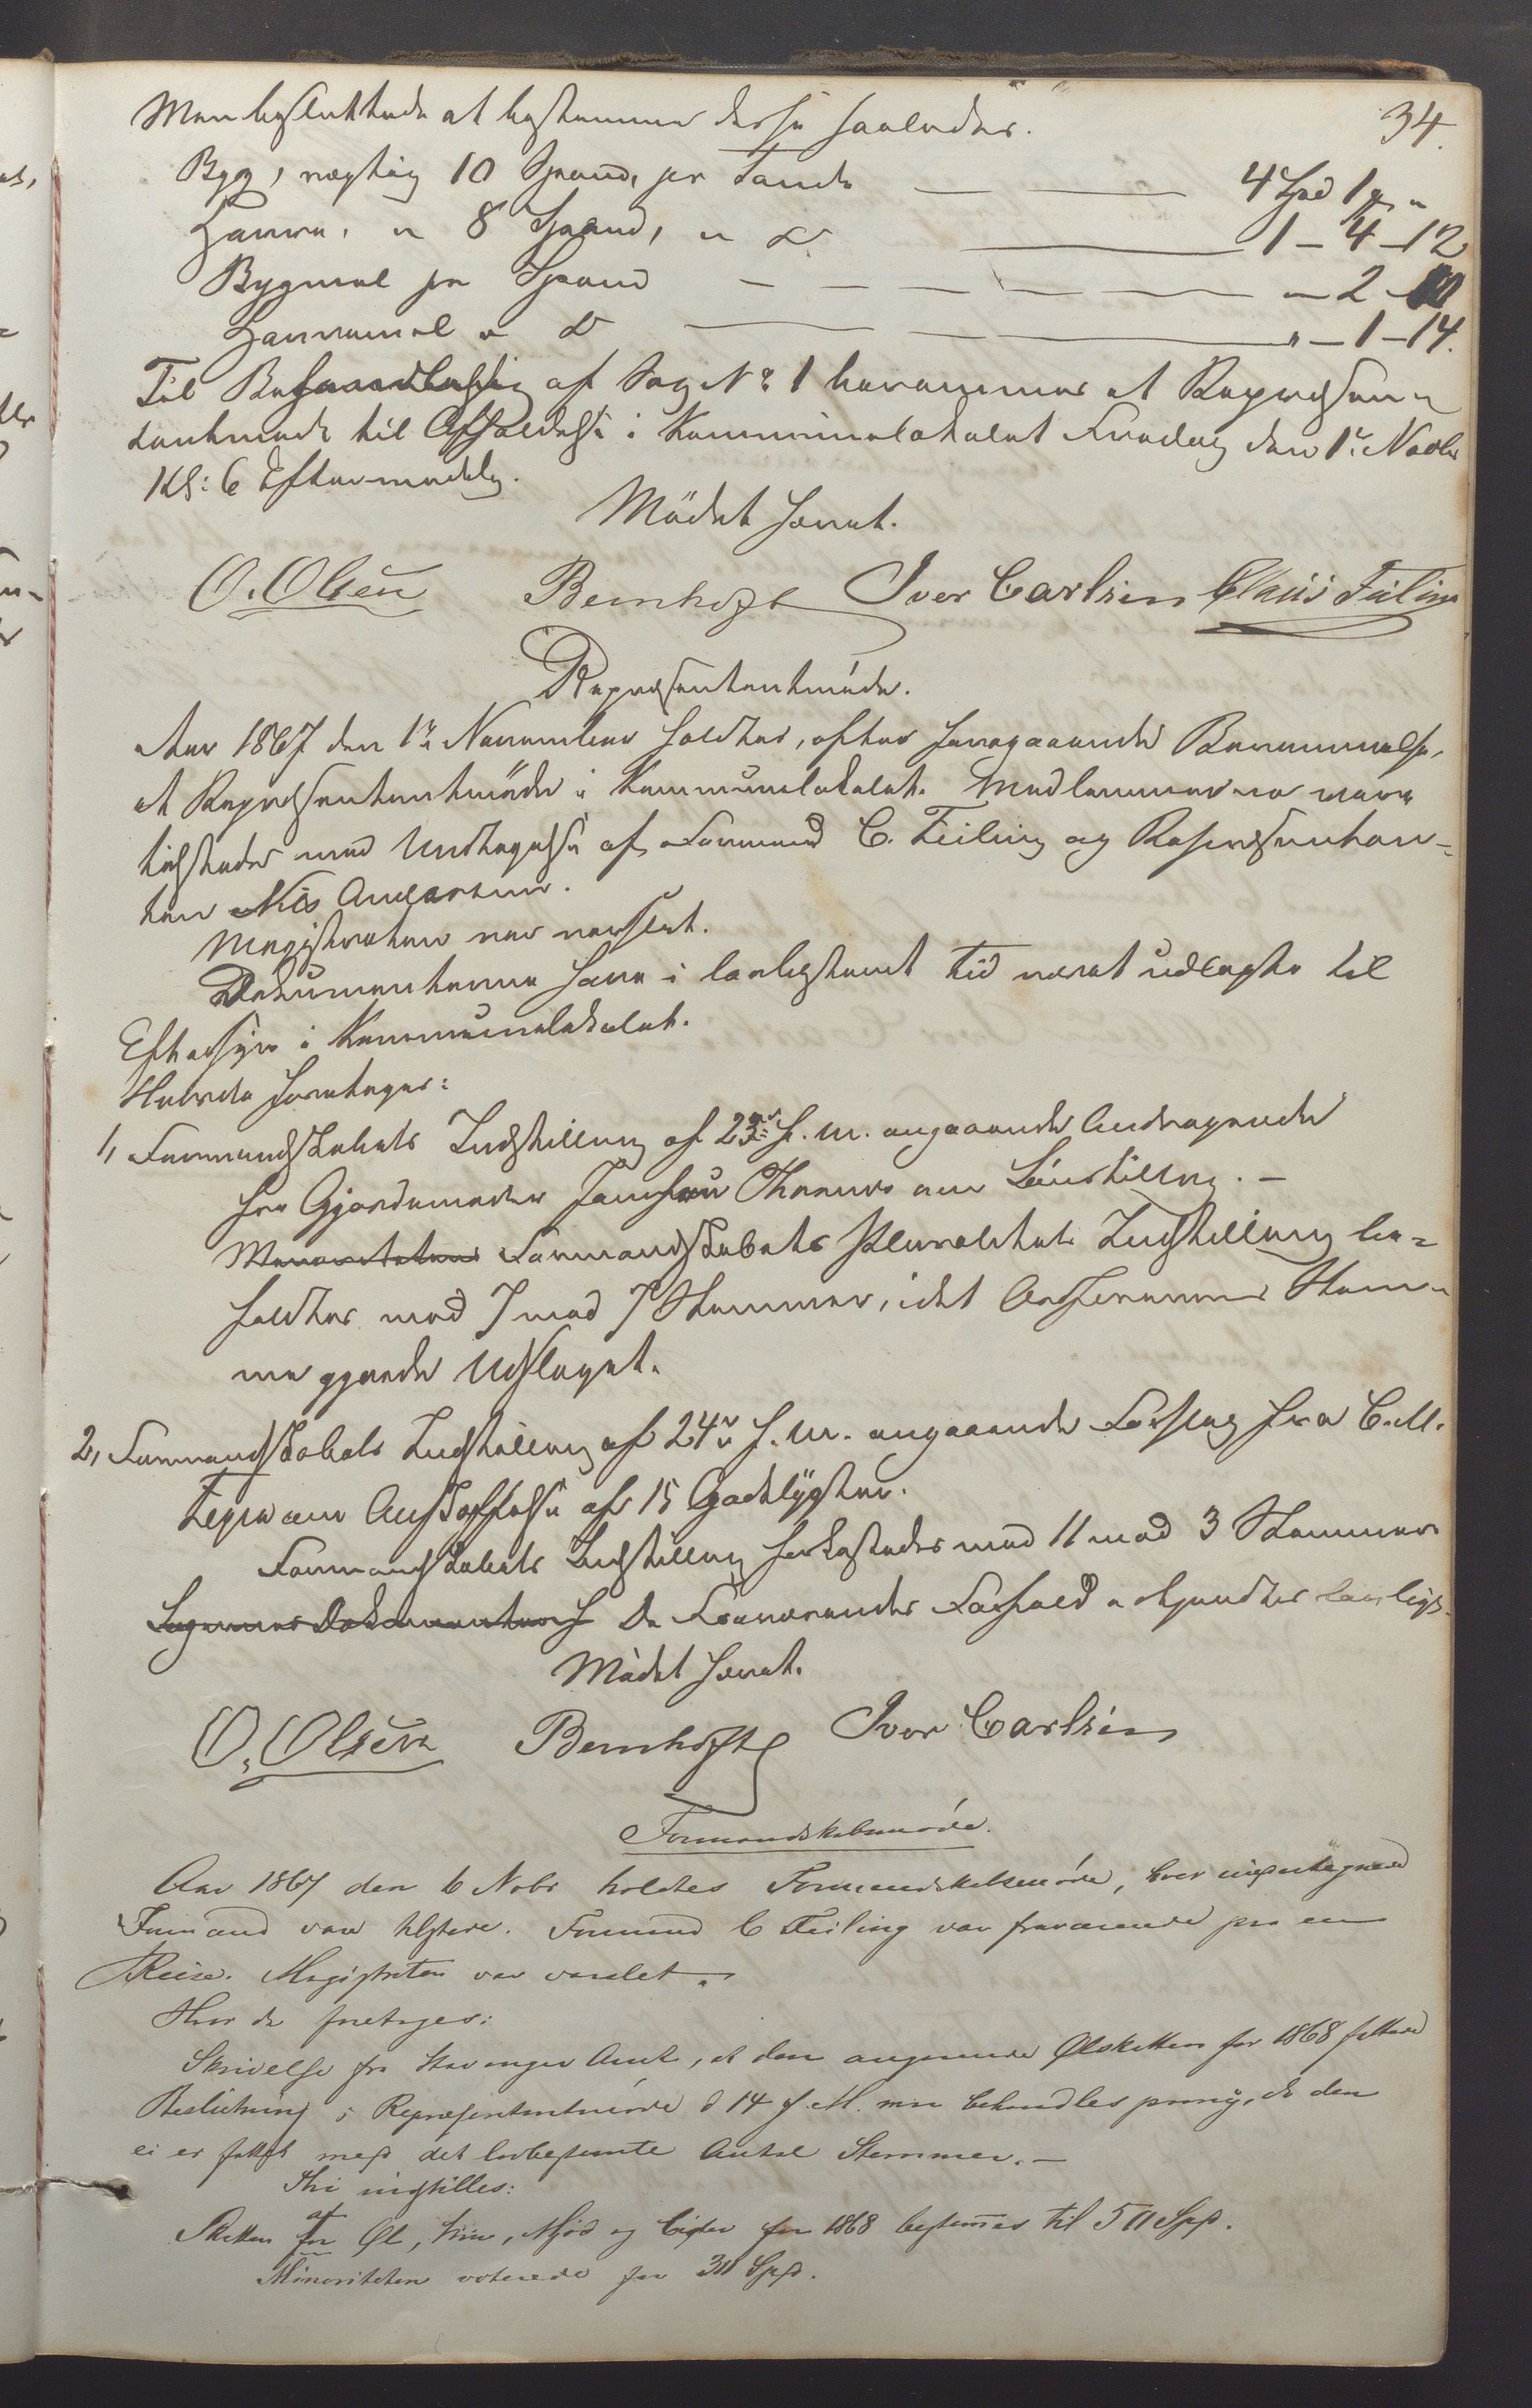 34.
Man besluttede at bestemme disse saaledes.
Byg, vægtig 10 Spand, pr Tønde — — 4 Spd 1 ȼ "
Havre, " 8 Spand, " do — 1 – 4 – 12
Bygmel pr Spand — — — — — — " – 2 – 10
Havremel " do — — " – 1 – 14.
Til Behandling af Sag No 1 berammes et Repræsen-
tantmøde til Afholdelse i Kommunelokalet Fredag den 1ste Novbr
Kl: 6 Eftermiddag.
Mödet hævet.
O. Olsen Bernhoft Iver Carlsen Claus Feiling
Repræsentantmöde.
Aar 1867 den 1ste November holdtes, efter foregaaende Berammelse,
et Repræsentantmöde i Kommunelokalet. Medlemmerne vare
tilstede med Undtagelse af Formand C. Feiling og Repræsentan-
ten Nils Andersen.
Magistraten var varslet.
Dokumenterne have i lovbestemt Tid været udlagte til
Eftersyn i Kommunelokalet.
Hvorda foretages:
1, Formandskabets Indstilling af 23de f. M. angaaende Andragende
fra Gjordemoder om Lönstillæg. –
Formandskabets Pluralitets Indstilling bi-
foldtes med 7 mod 7 Stemmer, idet Ordførerens Stem-
me gjorde Udslaget.
2, Formandskabets Indstilling af 24de f. M. angaaende Forslag fra C. M.
om Anskaffelse af 15 Gadelygter.
Formandskabets Indstilling forkastedes med 11 mod 3 Stemmer
De Fraværendes Forfald erkjendtes lovligt.
Mödet hævet.
O. Olsen Bernhoft Iver Carlsen
Formandskabsmøde.
Aar 1867 den 6 Nobr holdtes Formandskabsmøde, hvor undertegnede
Formænd vare tilstede. Formand C Feiling var fraværende paa en
Reise. Magistraten var varslet.
Hvor da foretoges:
Skrivelse fra Stavanger Amt, at den angaaende Ølskatten for 1868 fattede
Beslutning i Repræsentantmøde d 14 f. M. maa behandles paany, da den
ei er fattet med det lovbestemte Antal Stemmer. –
Thi indstilles:
Skatten af Øl, Viin, Mjød og Cider for 1868 bestemmes til 511 Spd.
Minoriteten voterede for 311 Spd.